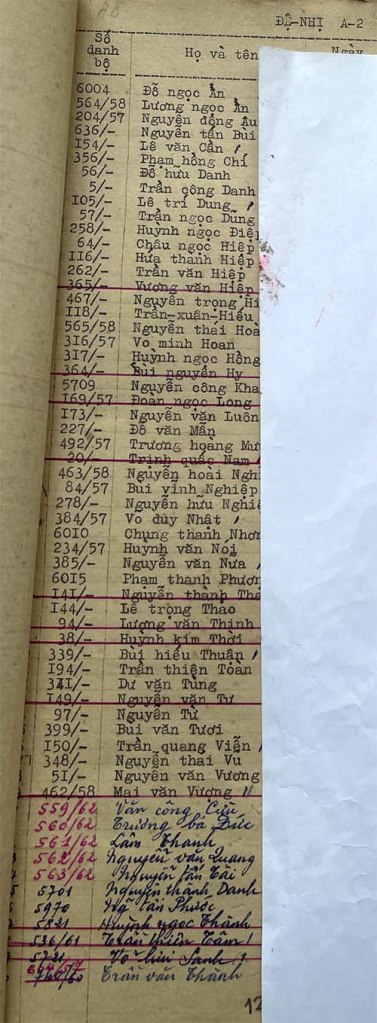 ĐỆ-NHỊ A-2
Số danh bộ Họ và tên Ngày
6004 Đỗ ngọc Ẩn
564/58 Lương ngọc Ẩn
204/57 Nguyễn đông Âu
636/- Nguyễn tấn Bùi
154/- Lê văn Cần
356/- Phạm hồng Chí
56/- Đỗ hữu Danh
5/- Trần công Danh
105/- Lê trí Dung
57/- Trần ngọc Dũng
258/- Huỳnh ngọc Điệp
64/- Châu ngọc Hiệp
116/- Hứa thành Hiệp
262/- Trần văn Hiệp
365/- Vương văn Hiệp
467/- Nguyễn trọng Hi
118/- Trần-xuân-Hiếu
565/58 Nguyễn thái Hoà
316/57 Vo minh Hoan
317/- Huỳnh ngọc Hồng
364/- Bùi nguyên Hy
5709 Nguyễn công Kha
169/57 Đoàn ngọc Long
173/- Nguyễn văn Luôn
227/- Đỗ văn Mẫn
492/57 Trương hoàng Mư
20/- Trịnh quốc Nam
463/58 Nguyễn hoài Nghi
84/57 Bui vĩnh Nghiệp
278/- Nguyễn hữu Nghiê
384/57 Vo duy Nhật
6010 Chung thanh Nhơn
234/57 Huynh văn Nói
385/- Nguyễn văn Nưa
6015 Phạm thanh Phươn
141/- Nguyễn thành Thá
144/- Lê trọng Thao
94/- Lương văn Thinh
38/- Huỳnh kim Thời
339/- Bùi hiếu Thuận
194/- Trần thiện Toàn
341/- Dư văn Tùng
149/- Nguyễn văn Tư
97/- Nguyễn Từ
399/- Bui văn Tươi
150/- Trần quang Viễn
348/- Nguyễn thai Vu
51/- Nguyễn văn Vương
462/58 Mai văn Vương
559/62 Văn công Cửu
560/62 Trương bá Đức
561/62 Lâm Thanh
562/62 Nguyễn văn Quang
563/62 Nguyễn tấn Tài
5701 Nguyễn thành Danh
5970 Ngô tấn Phước
5821 Huỳnh ngọc Thành
536/61 Trần thiên Tâm
5721 Võ hữu Sanh
664/57
740/60 Trần văn Thành
12